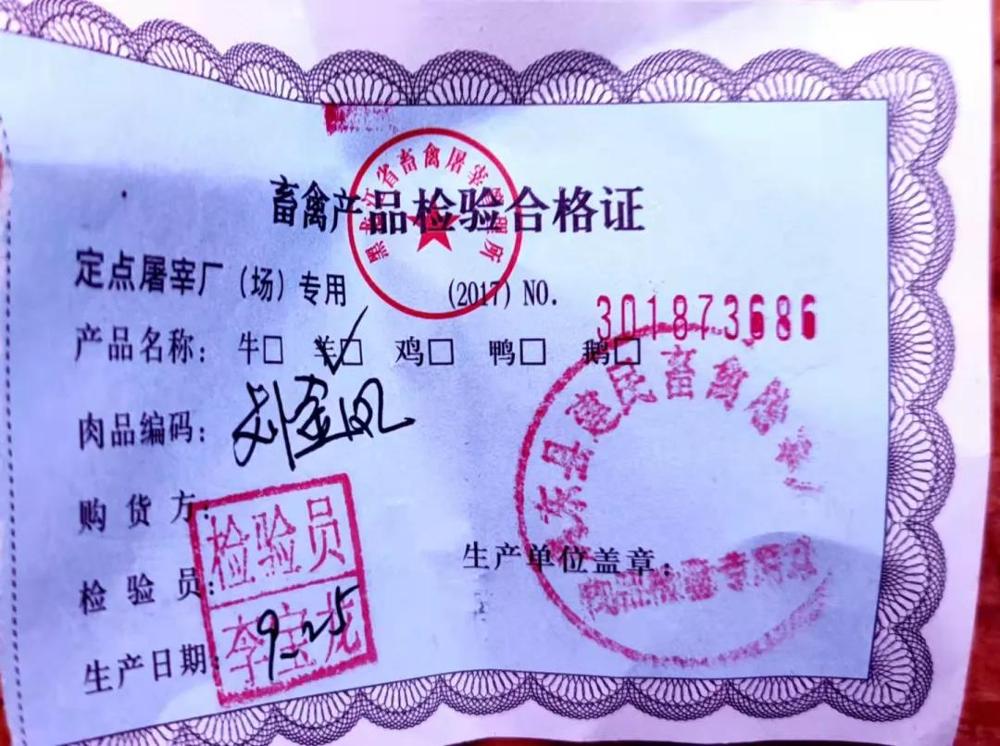 黑龙江省畜禽屠宰管理所
畜禽产品检验合格证
定点屠宰厂（场）专用 (2017) NO. 301873686
产品名称：牛□ 羊☑ 鸡□ 鸭□ 鹅□
肉品编码：刘金凤
购货方：
检验员：检验员
李宝龙
生产日期：9-25
生产单位盖章：
东县建民畜禽屠宰厂
肉品检验专用章